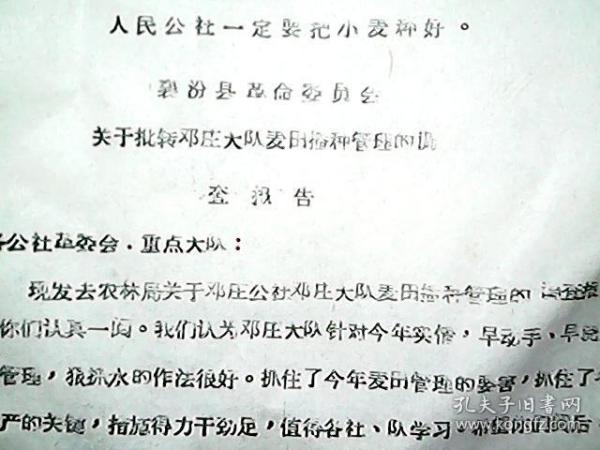 人民公社一定要把小麦种好。
襄汾县革命委员会
关于批转邓庄大队麦田播种管理的调
查报告
各公社革委会．重点大队：
现发去农林局关于邓庄公社邓庄大队麦田播种管理的
你们认真一阅。我们认为邓庄大队针对今年实情，早动手、早
管理，狠抓水的作法很好。抓住了今年麦田管理的要害，抓住了
产的关键，措施得力干劲足，值得各社、队学习
孔夫子旧书网
www.kongfz.com